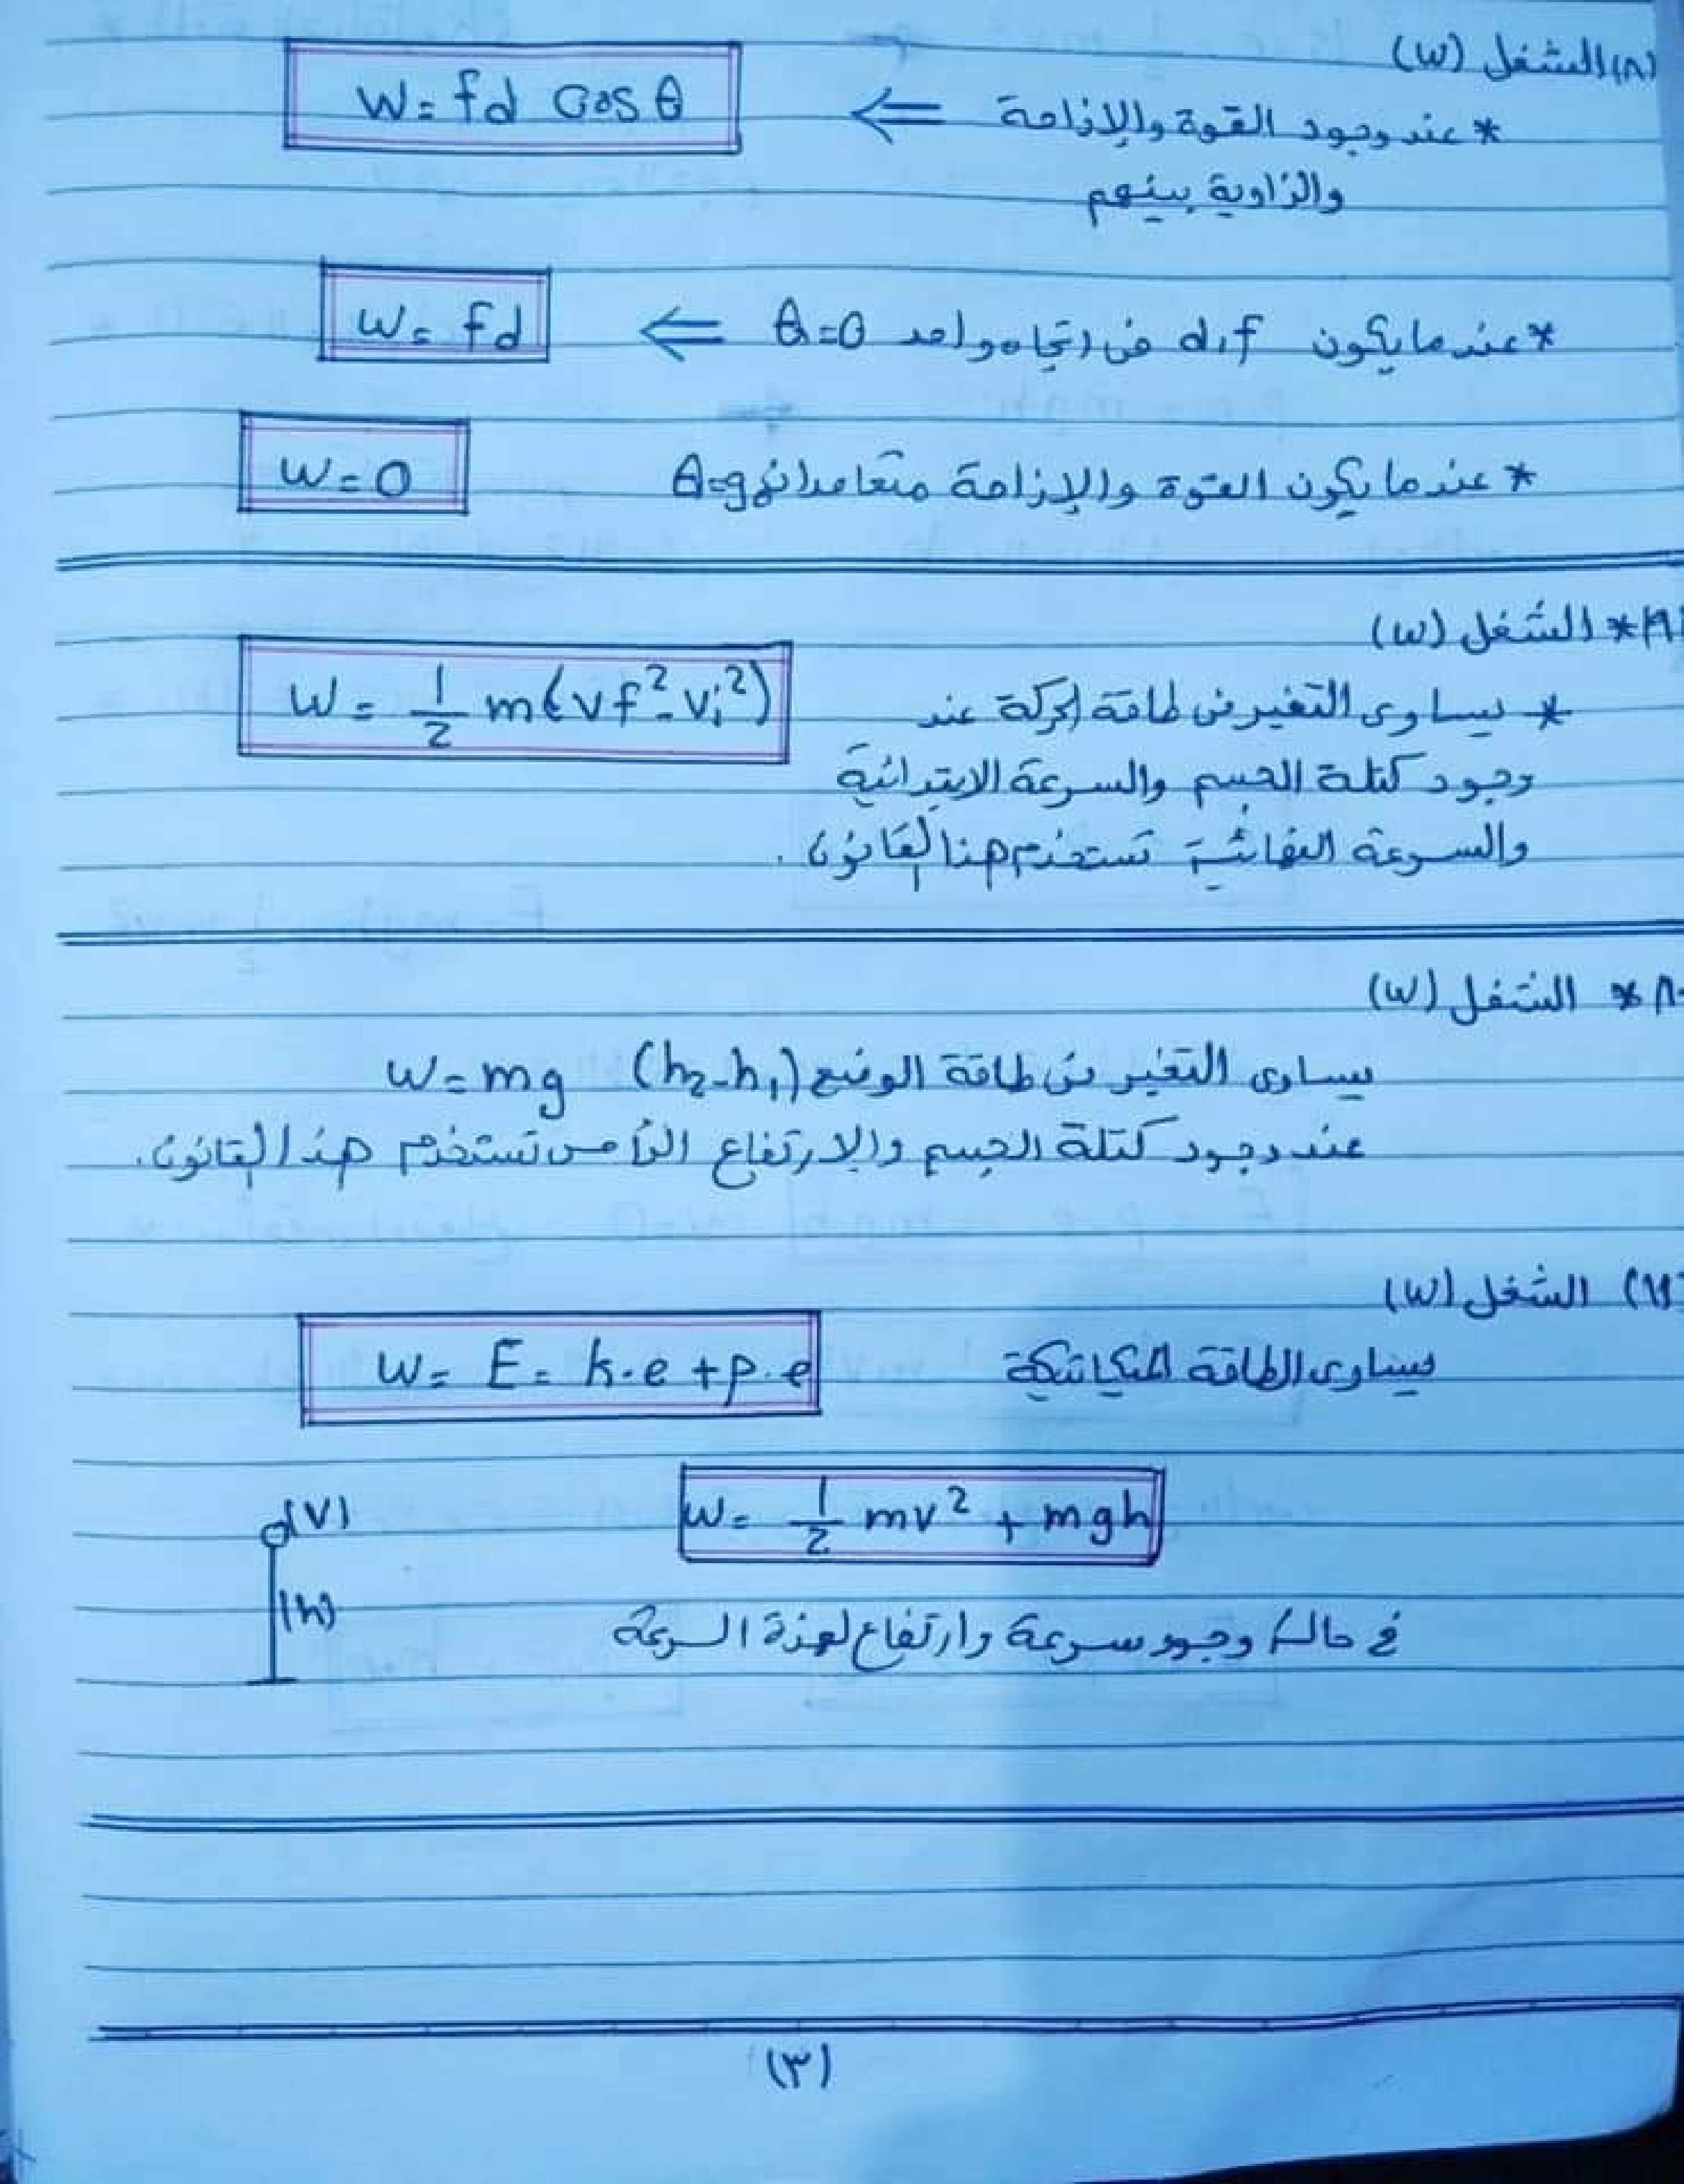 (١٨) الشغل (W)
* عند وجود القوة والإزاحة ⇐ W = fd Cos θ
والزاوية بينهم
* عندما يكون d،f فى اتجاه واحد θ=0 ⇐ W = fd
* عندما يكون القوة والإزاحة متعامدان θ=90 W = 0
١٩* الشغل (W)
* يساوى التغير فى طاقة الحركة عند W = 1/2 m(vf² - vi²)
وجود كتلة الجسم والسرعة الابتدائية
والسرعة النهائية تستخدم هذا القانون .
* الشغل (W)
يساوى التغير فى طاقة الوضع W = mg (h₂-h₁)
عند وجود كتلة الجسم والارتفاع الرأسى تستخدم هذا القانون .
(٢١) الشغل (W)
يساوى الطاقة الميكانيكية W = E = k.e + p.e
W = 1/2 mv² + mgh
(V)
(h)
فى حالة وجود سرعة وارتفاع لهذة السرعة
(٣)